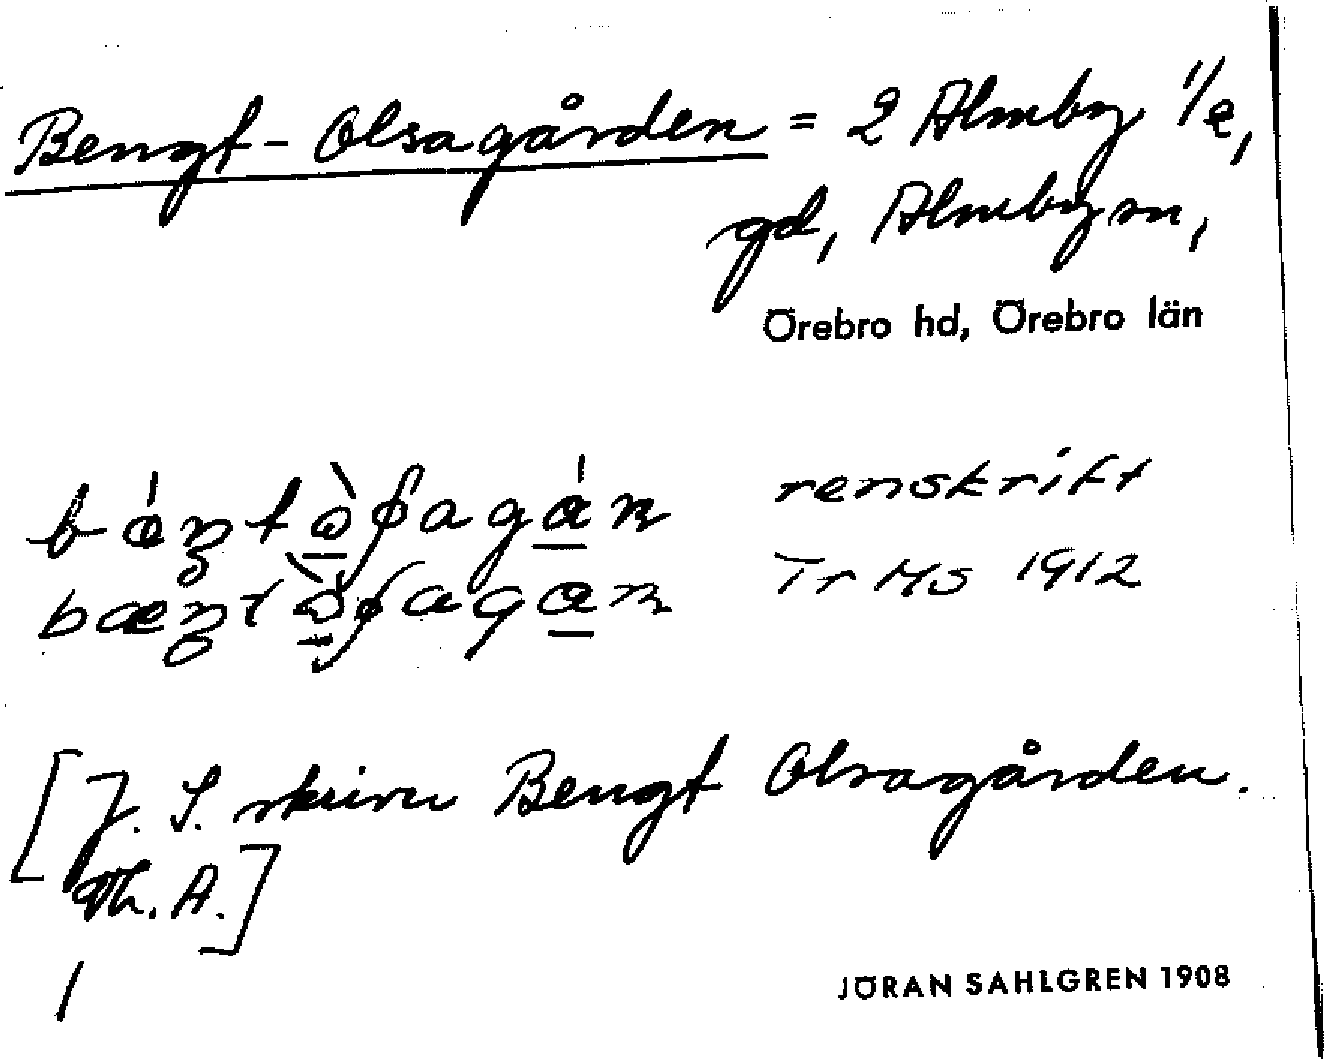 Bengt-Olsagården = 2 Almby 1/2,
gd, Almby sn,
Örebro hd, Örebro län
renskrift
Tr Ms 1912
[J. S. skriver Bengt Olsagården.
Th. A.]
JÖRAN SAHLGREN 1908